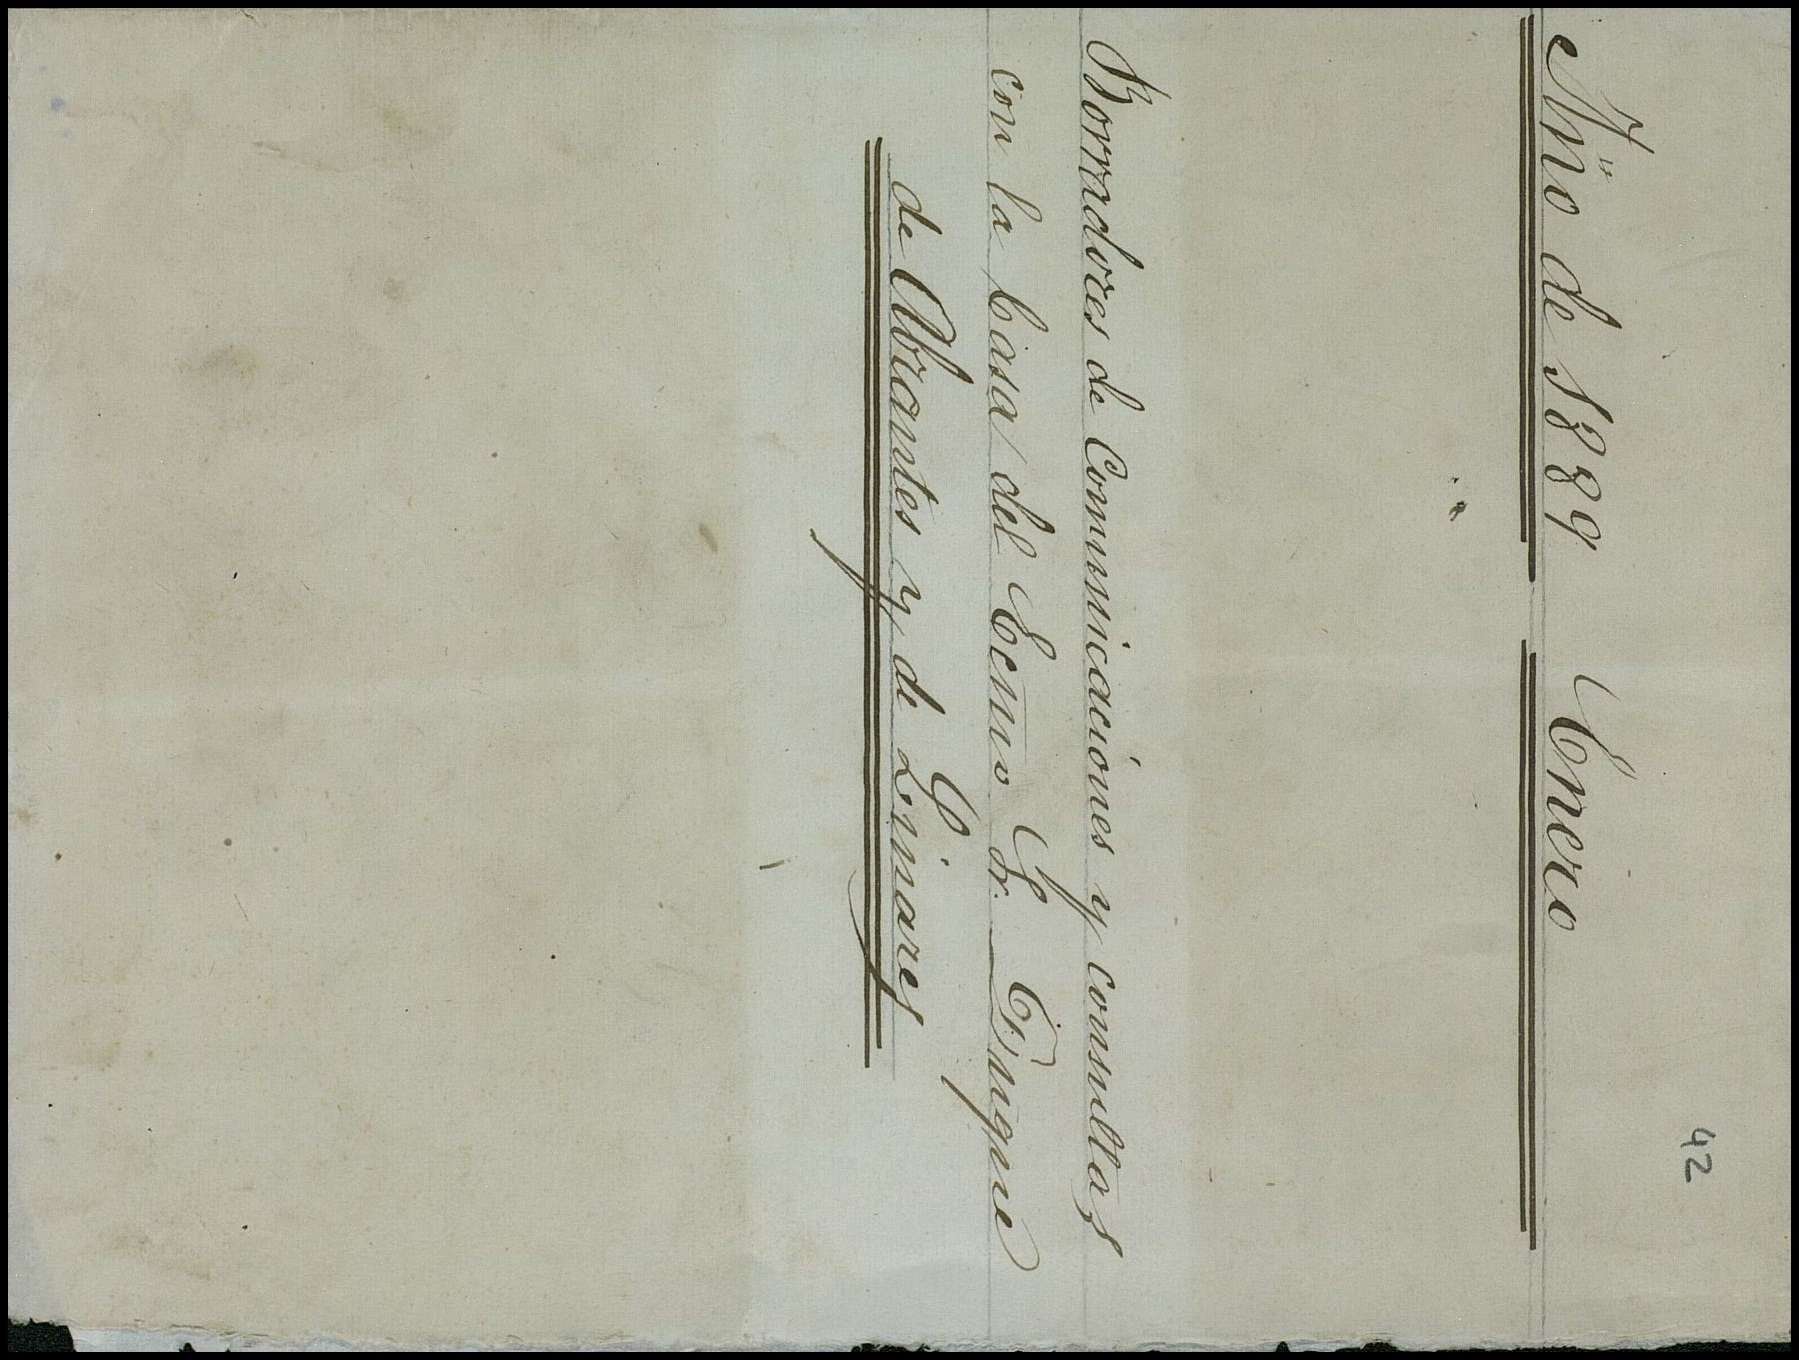 42
Año de 1889 Enero
Borradores de Comunicaciones y consultas
con la Casa del Ecmo Sr. Duque
de Abrantes y de Linares